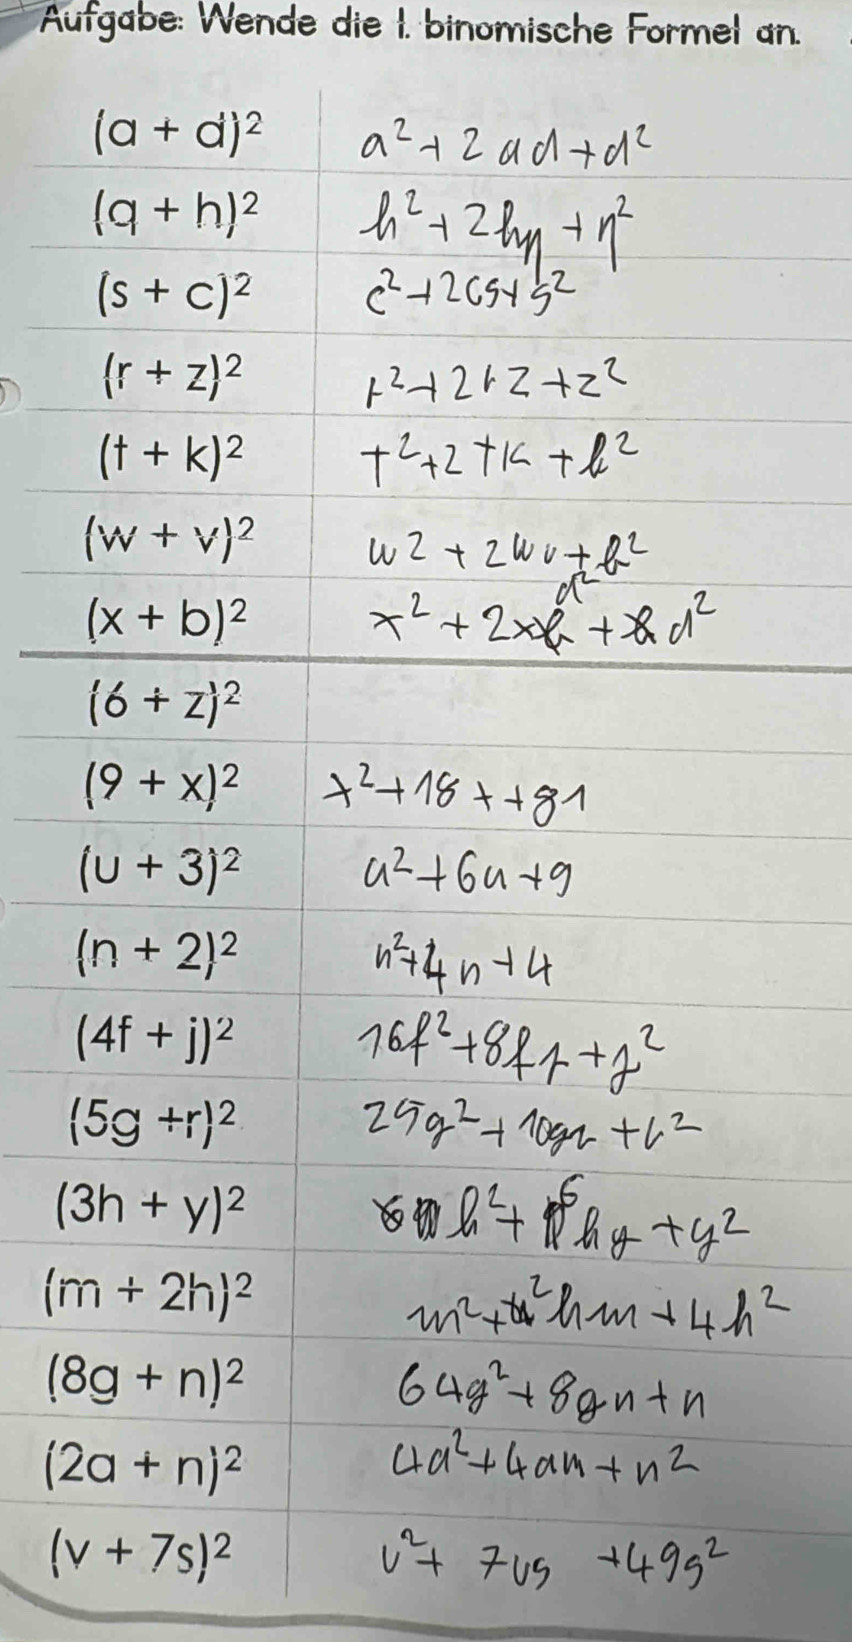 Aufgabe: Wende die 1. binomische Formel an.
(a + d)² a² + 2ad + d²
(q + h)² h² + 2hq + q²
(s + c)² c² + 2cs + s²
(r + z)² r² + 2rz + z²
(t + k)² t² + 2tk + k²
(w + v)² w2 + 2wv + k²
(x + b)² x² + 2x + d²
(6 + z)²
(9 + x)² x² + 18x + 81
(u + 3)² u² + 6u + 9
(n + 2)² n² + 4n + 4
(4f + j)² 16f² + 8fj + j²
(5g +r)² 25g² + 10gr + r²
(3h + y)² h² + 6hy + y²
(m + 2h)² m² + 2hm + 4h²
(8g + n)² 64g² + 8gn + n
(2a + n)² 4a² + 4an + n²
(v + 7s)² v² + 7vs + 49s²